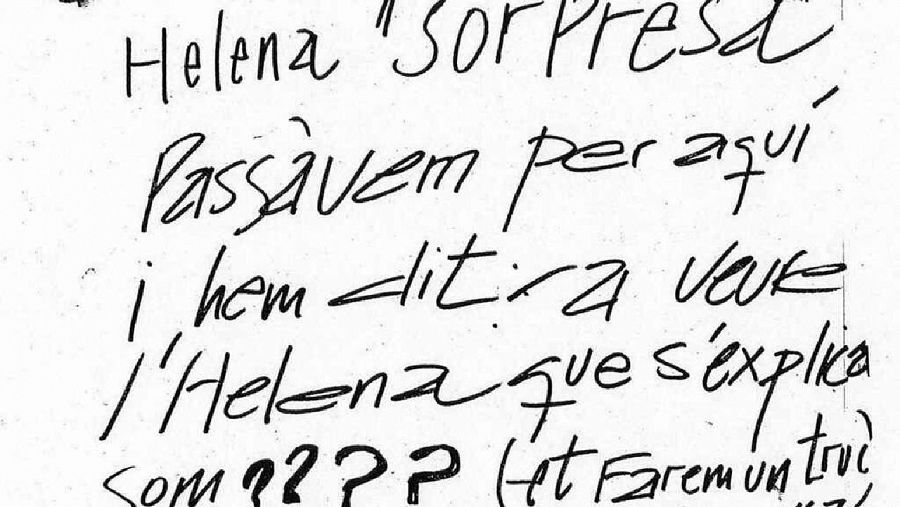 Helena "Sorpresa
Passàvem per aquí
i hem dit: a veure
l'Helena que s'explica
som ???? (et Farem un truc